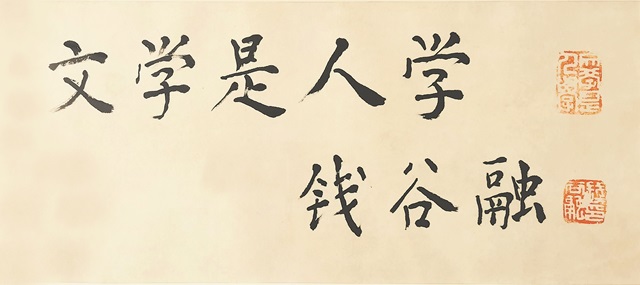 文学是人学
钱谷融